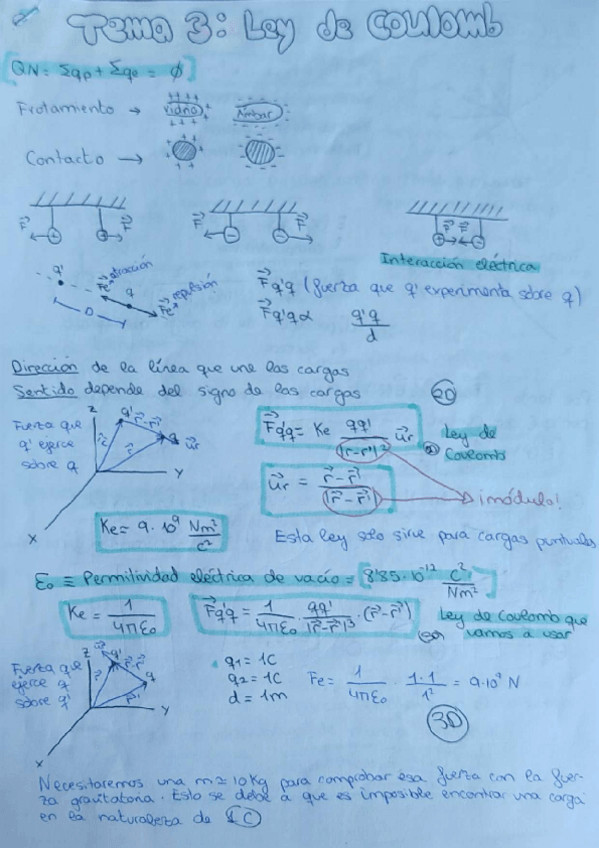 Tema 3: Ley de Coulomb
QN = Σqp + Σqe = ∅
Frotamiento → vidrio Ámbar
Contacto →
F F F F F F
Interacción eléctrica
q' Fe atracción q Fe repulsión
D
Fq'q (fuerza que q' experimenta sobre q)
Fq'q α q'q / d
Dirección de la línea que une las cargas
Sentido depende del signo de las cargas
2D
Fuerza que
q' ejerce
sobre q
z q' r-r' q ur r' r y x
Fq'q = Ke qq' / |r-r'|² ur Ley de
Coulomb
ur = r-r' / |r-r'| ¡módulo!
Ke = 9·10⁹ Nm² / C²
Esta ley solo sirve para cargas puntuales
ε₀ ≡ Permitividad eléctrica de vacío = 8'85·10⁻¹² C² / Nm²
Ke = 1 / 4πε₀
Fq'q = 1 / 4πε₀ · qq' / |r-r'|³ · (r-r')
Ley de Coulomb que
vamos a usar
Fuerza que
ejerce q
sobre q'
z q' q y x
q1 = 1C
q2 = 1C
d = 1m
Fe = 1 / 4πε₀ · 1·1 / 1² = 9·10⁹ N
3D
Necesitaremos una m≈10 Kg para comprobar esa fuerza con la fuer-
za gravitatoria. Esto se debe a que es imposible encontrar una carga
en la naturaleza de 1C